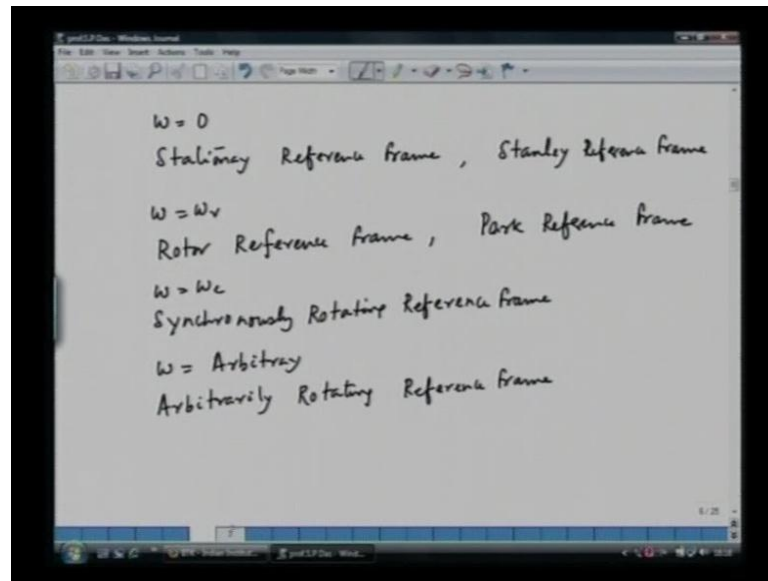 prof.S.P.Das - Windows Journal
File Edit View Insert Actions Tools Help
Page Width
ω = 0
Stationary Reference frame, Stanley Reference frame
ω = ωr
Rotor Reference frame, Park Reference frame
ω = ωe
Synchronously Rotating Reference frame
ω = Arbitray
Arbitrarily Rotating Reference frame
6/25
prof.S.P.Das - Wind...